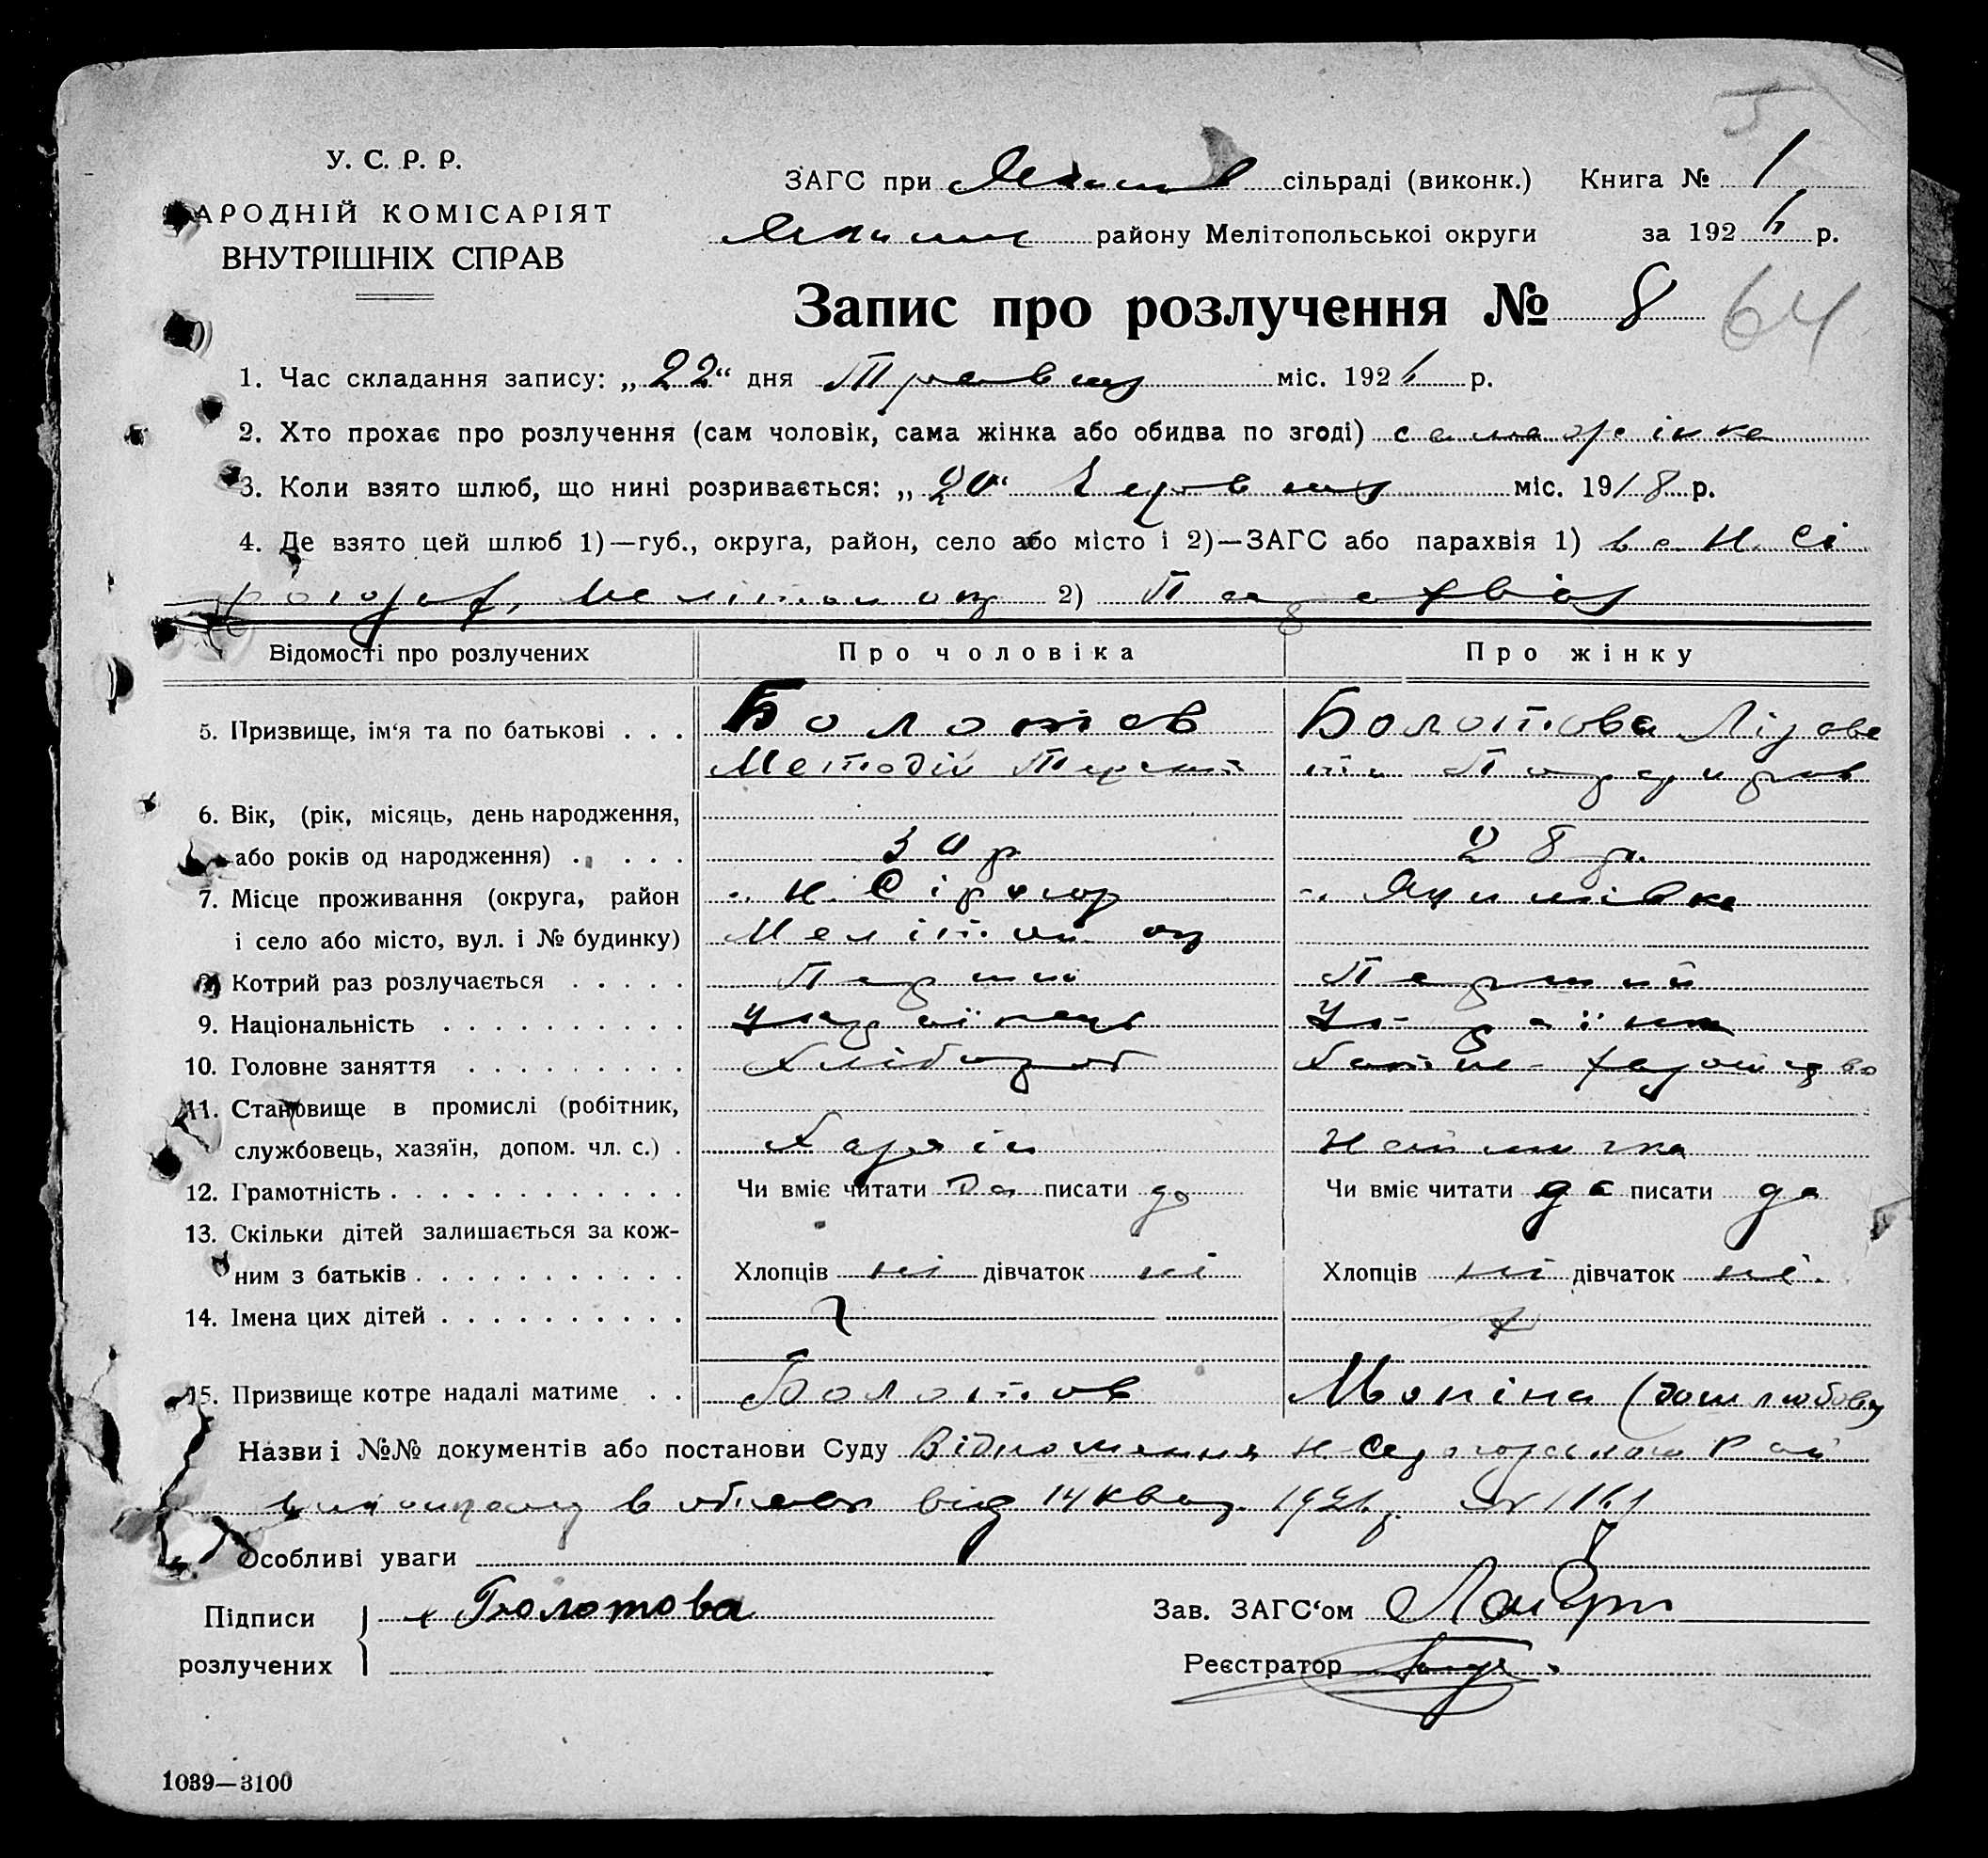 У. С. Р. Р.
АРОДНІЙ КОМІСАРІЯТ
ВНУТРІШНІХ СПРАВ
ЗАГС при сільраді (виконк.) Книга № 1
району Мелітопольської округи за 1926 р.
Запис про розлучення № 8 64
1. Час складання запису: „22“ дня Травня міс. 1926 р.
2. Хто прохає про розлучення (сам чоловік, сама жінка або обидва по згоді) сама жінка
3. Коли взято шлюб, що нині розривається: „20“ Червня міс. 1918 р.
4. Де взято цей шлюб 1)—губ., округа, район, село або місто і 2)—ЗАГС або парахвія 1) в с. Н. Сі
рогозах, Мелітоп окр 2) Парахвія
Відомості про розлучених Про чоловіка Про жінку
5. Призвище, ім‘я та по батькові . . . Болотов Болотова Лізаве
Методій та
6. Вік, (рік, місяць, день народження,
або років од народження) . . . . . 30 р 28 р.
7. Місце проживання (округа, район с. Н. Сірогоз с. Якимівка
і село або місто, вул. і № будинку) Мелітоп окр
8. Котрий раз розлучається . . . . . Перший Перший
9. Національність . . . . . . . . . . Українець Українка
10. Головне заняття . . . . . . . . . Хлібороб Хатнє
11. Становище в промислі (робітник,
службовець, хазяїн, допом. чл. с.) . Хазяїн Наймичка
12. Грамотність . . . . . . . . . . . . Чи вміє читати да писати да Чи вміє читати да писати да
13. Скільки дітей залишається за кож-
ним з батьків . . . . . . . . . . . Хлопців ні дівчаток ні Хлопців ні дівчаток ні.
14. Імена цих дітей . . . . . . . . . .
15. Призвище котре надалі матиме . . Болотов (дошлюбову
Назви і №№ документів або постанови Суду Відношення Н-Сірогозького Рай
виконкому від 14 квіт. 1926 р. №
Особливі уваги
Підписи Болотова Зав. ЗАГС‘ом
розлучених Реєстратор
1039—3100